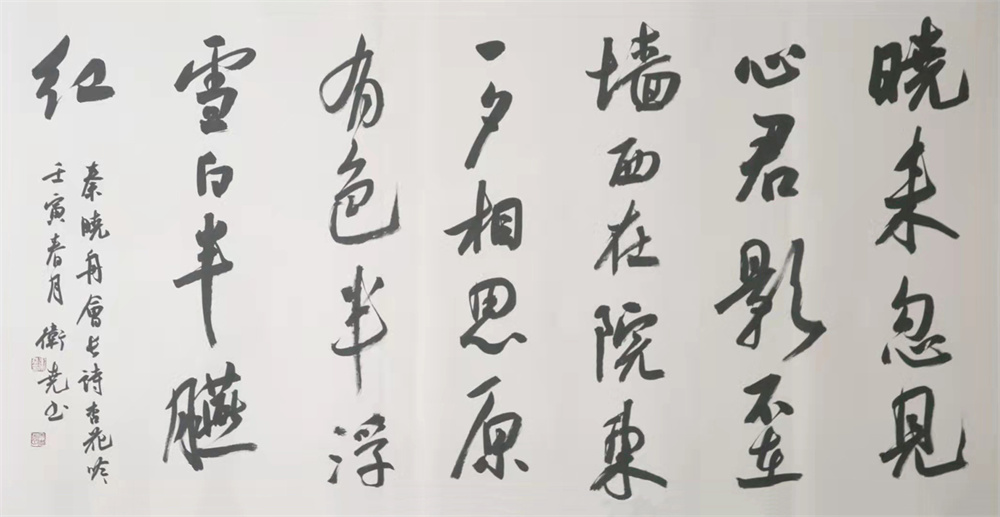 晓来忽见
心君影不在
墙西在院东
一夕相思原
有色半浮
雪白半臙
红
秦晓舟會长詩杏花吟
壬寅春月 衛尧书